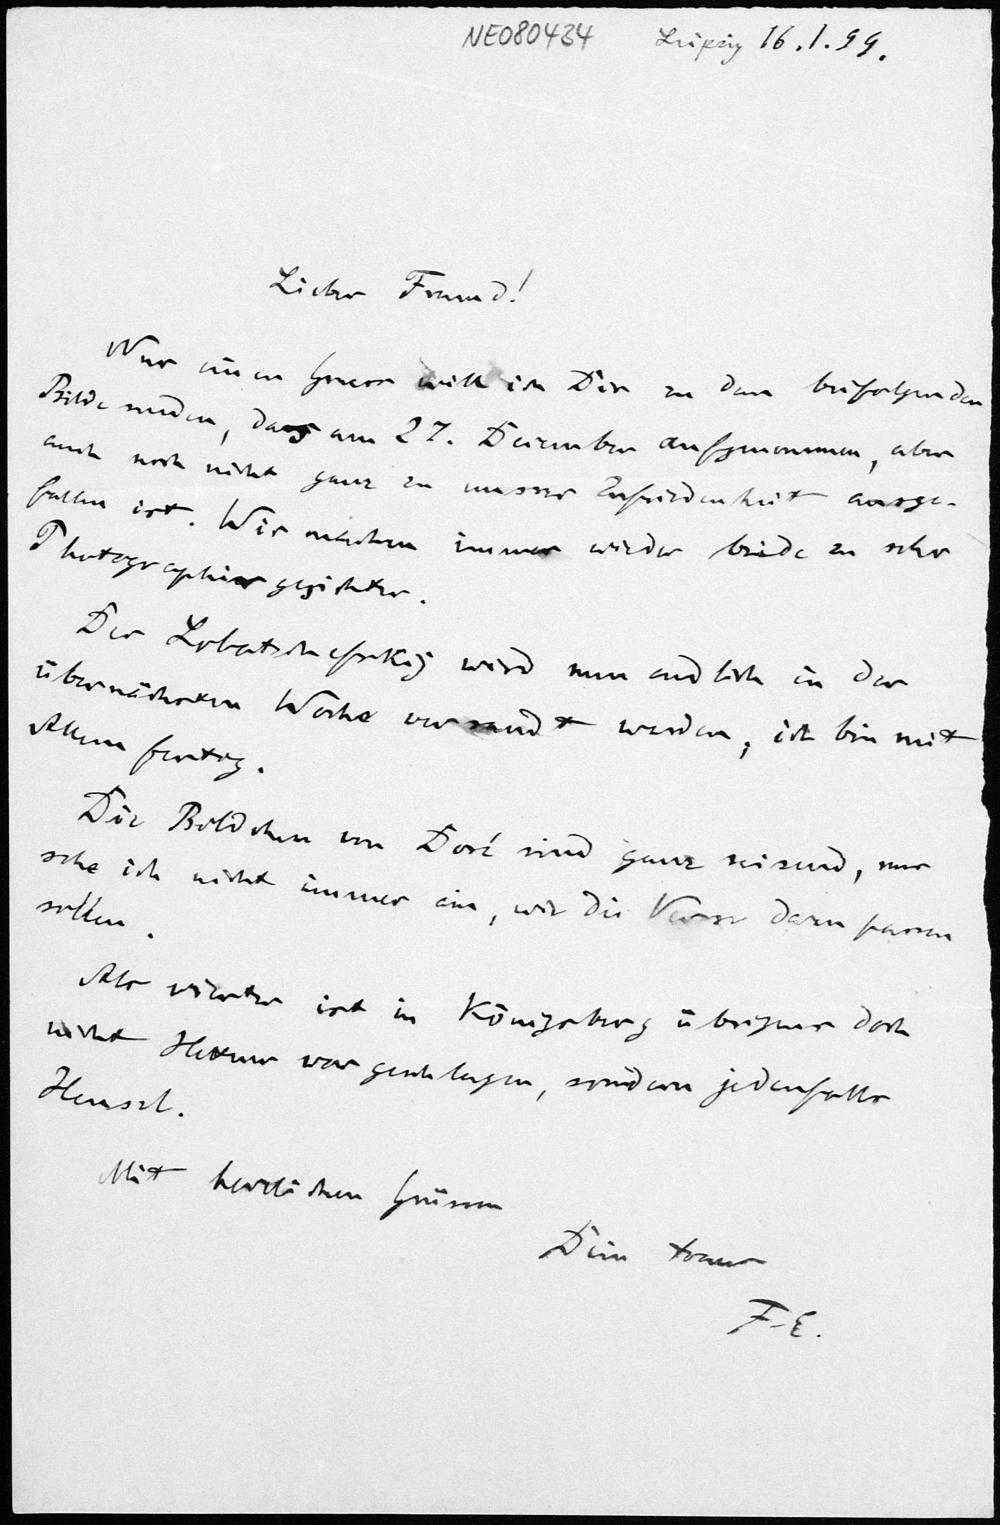 NE080434 Leipzig 16.1.99.
Lieber Freund!
Nur einen Gruss will ich Dir zu dem beifolgenden
Bilde senden, das am 27. Dezember aufgenommen, aber
auch noch nicht ganz zu unsrer Zufriedenheit ausge-
fallen ist. Wir machen immer wieder beide zu sehr
Photographiergesichter.
Der Lobatschefskij wird nun endlich in der
übernächsten Woche versandt werden, ich bin mit
Allem fertig.
Die Bildchen von Doré sind ganz reizend, nur
sehe ich nicht immer ein, wie die Verse dazu passen
sollen.
Als vierter ist in Königsberg übrigens doch
nicht Hettner vorgeschlagen, sondern jedenfalls
Hensel.
Mit herzlichen Grüssen
Dein treuer
F.E.